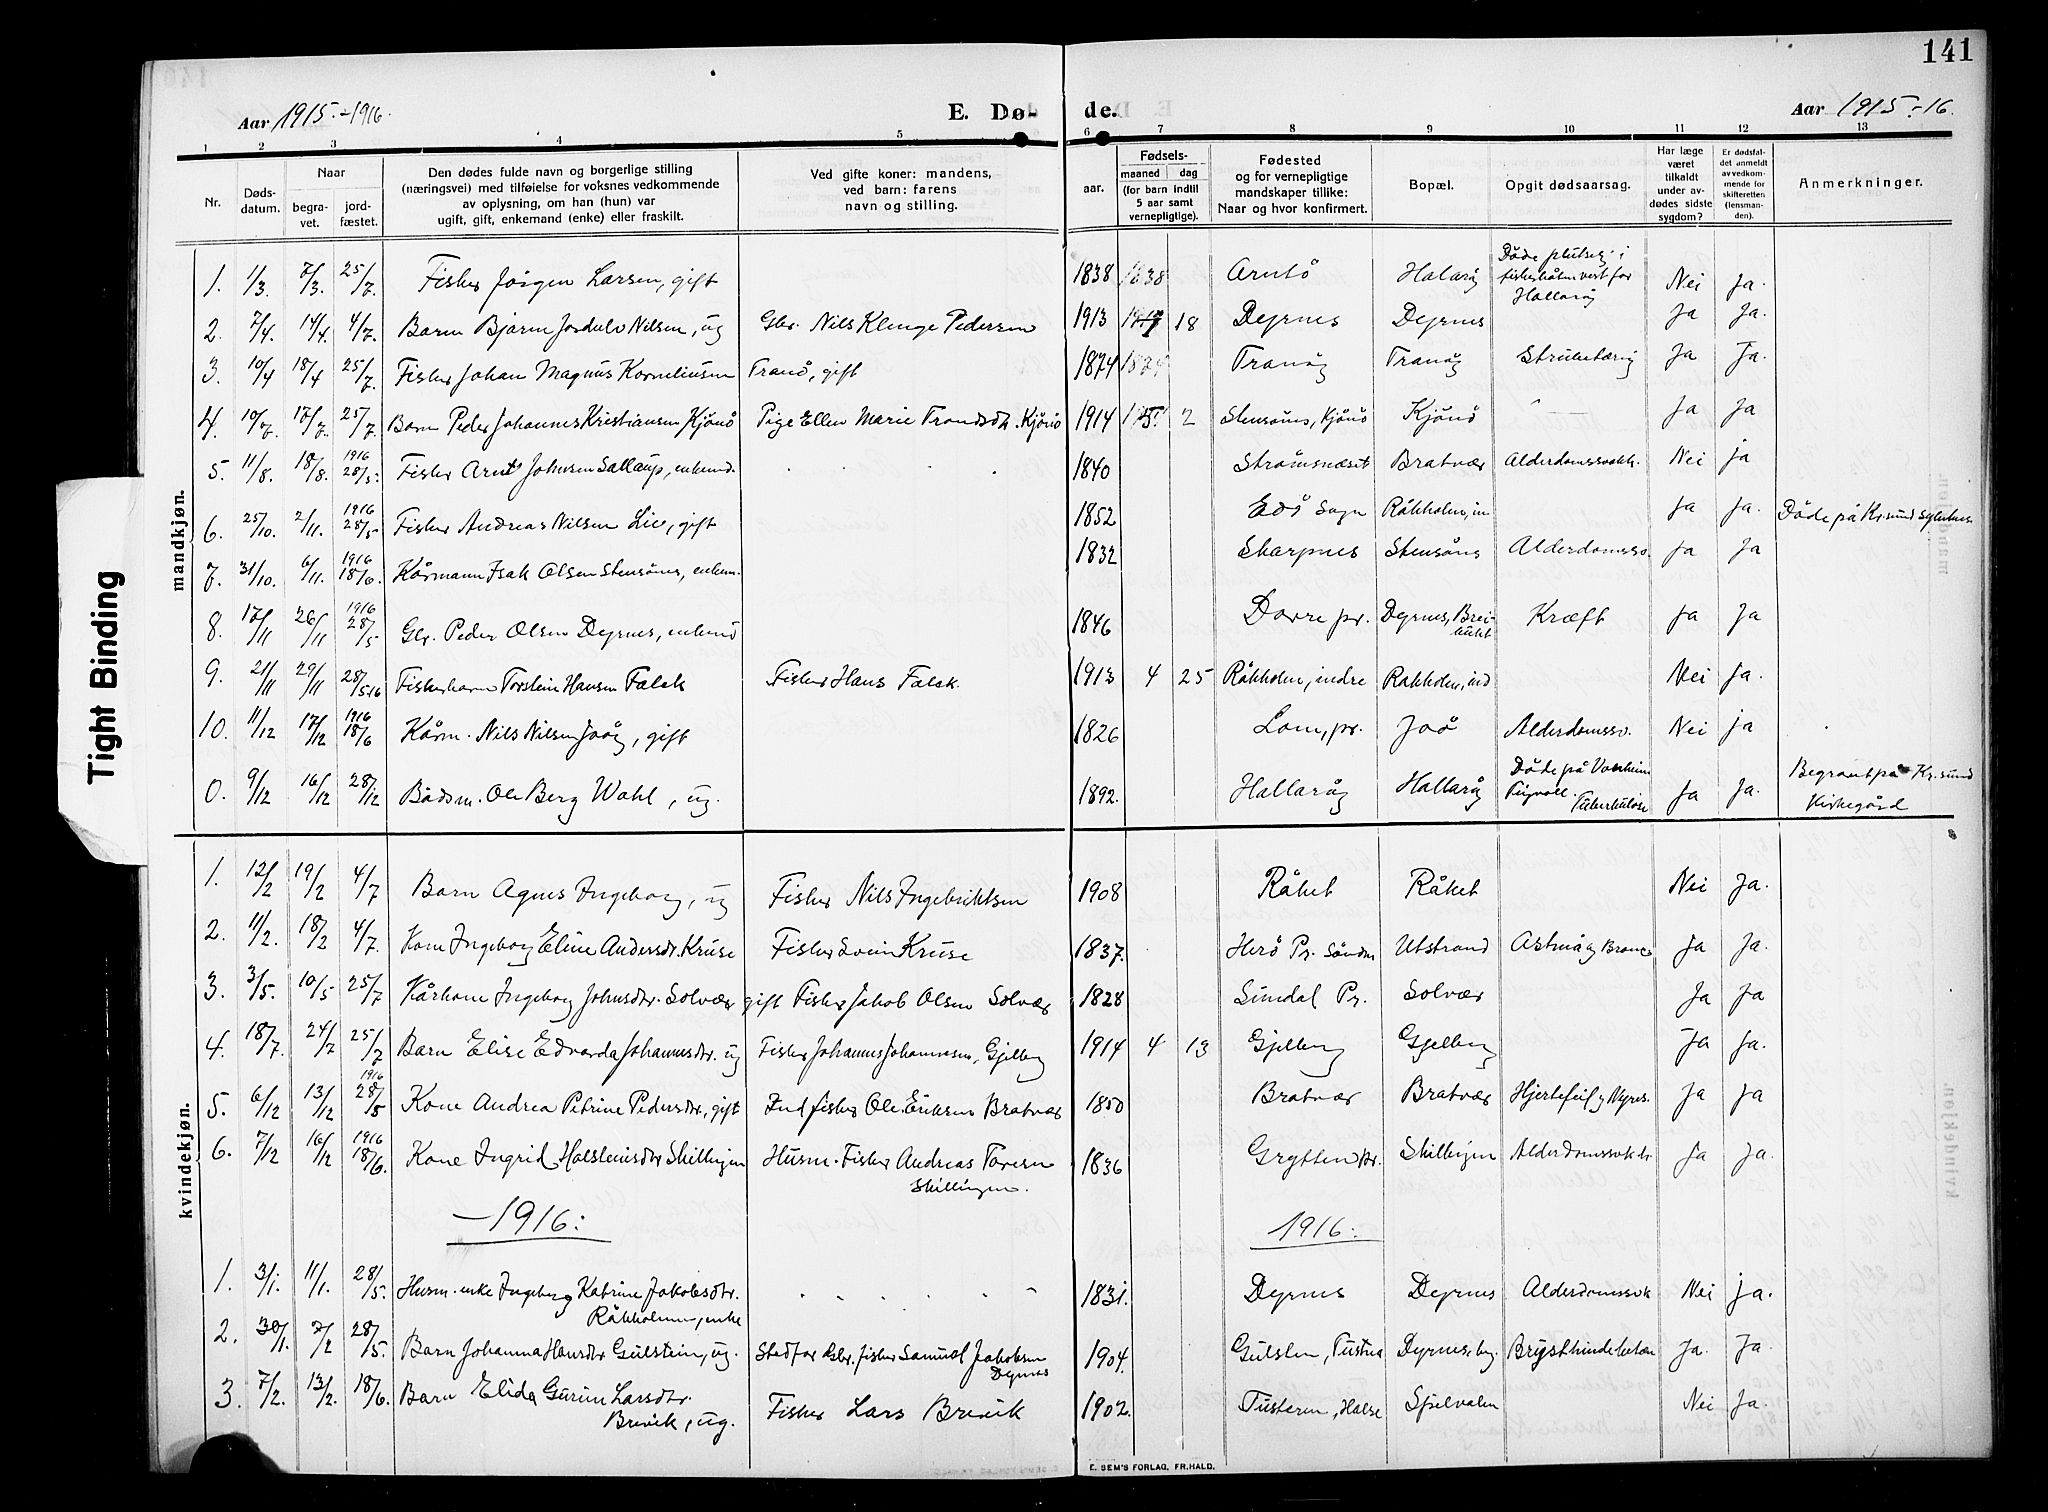 141
Aar 1915-1916.
E. Dø- de.
Aar 1915-16.
1 2 3 4 5 6 7 8 9 10 11 12 13
Nr.
Døds-
datum.
Naar
begra-
vet.
jord-
fæstet.
Den dødes fulde navn og borgerlige stilling
(næringsvei) med tilføielse for voksnes vedkommende
av oplysning, om han (hun) var
ugift, gift, enkemand (enke) eller fraskilt.
Ved gifte koner: mandens,
ved barn: farens
navn og stilling.
aar.
Fødsels-
maaned dag
(for barn indtil
5 aar samt
vernepligtige).
Fødested
og for vernepligtige
mandskaper tillike:
Naar og hvor konfirmert.
Bopæl.
Opgit dødsaarsag.
Har læge
været
tilkaldt
under av-
dødes sidste
sygdom?
Er dødsfal-
det anmeldt
av vedkom-
mende for
skifteretten
(lensman-
den).
Anmerkninger.
mandkjøn.
1. 1/3. 7/3. 25/7. Fisker Jørgen Larsen, gift 1838 1838 Arntö Halarøy Døde plutseg i Nei Ja.
fiskebåten vest for
Hallarøy
2. 7/4. 14/4. 4/7. Barn Bjarne Nilsen, ug Gbr. Nils Klenge Pedersen 1913 18 Dyrnes Dyrnes Ja Ja.
3. 10/4 18/4 25/7. Fisker Johan Magnus Korneliussen Tranö, gift 1874 1874 Tranöy Tranöy Ja Ja.
4. 10/7. 17/7. 25/7. Barn Peder Johannes Kristiansen Kjönö Pige Ellen Marie Trondsdt. Kjönö 1914 2 Stensönes, Kjönö Kjönö " — Ja Ja
5. 11/8. 18/8. 1916 28/5. Fisker Arnt Johnsen, enkemd. 1840 Strömsnæset Bratvær Alderdomssvakh. Nei ja
6. 25/10. 2/11. 1916 28/5 Fisker Andreas Nilsen Liv, gift 1852 Edö Sogn Råkholm, in Ja Ja. Döde på Kr.sund
7. 31/10. 6/11. 1916 18/6. Kårmann Isak Olsen Stensönes, enkem. 1832 Skarpnes Stensöns Alderdomssv. Ja Ja
8. 17/11 26/11 1916 28/5 Gbr. Peder Olsen Dyrnes, enkemd 1846 Dovre pr. Dyrnes, Brei- Kræft Ja Ja
bukt
9. 21/11 29/11 28/5 16 Fiskerbarn Torstein Hansen Falck Fisker Hans Falck. 1913 4 25 Råkholm, indre Rakholm, ind Nei Ja.
10. 11/12 17/12 1916 18/6 Kårm. Nils Nilsen Joöy, gift 1826 Lom, pr. Joö Alderdomssv. Nei ja
0. 9/12 16/12 28/12 Bådsm. Ole Berg Wahl, ug. 1892. Hallaröy Hallaröy Döde på Ja Ja. Begravet på Kr.sund
Tingvoll. Tuberkulose Kirkegård
kvindekjøn.
1. 12/2 19/2 4/7 Barn Agnes Ingeborg, ug Fisker Nils Ingebriktsen 1908 Råket Råket Nei Ja.
2. 11/2. 18/2 4/7. Kone Ingeborg Eline Andersdt. Kruse Fisker Svein Kruse 1837. Herö Pr. Söndm Utstrand Astma og Bronc. Ja Ja.
3. 3/5. 10/5 25/7 Kårkone Ingeborg Johnsdtr. Solvær gift Fisker Jakob Olsen Solvær 1828 Sundal Pr. Solvær Ja Ja
4. 18/7. 24/7 25/7 Barn Elise Edvarda Johannesdtr. ug Fisker Johannes Johannesen, Gjelberg 1914 4 13 Gjelberg Gjelberg Ja Ja.
5. 6/12 13/12 1916 28/5 Kone Andrea Petrine Pedersdtr., gift Ind fisker Ole Eriksen Bratvær 1850 Bratvær Bratvær Hjertefeil og Nyres. Ja Ja
6. 7/12 16/12 1916 18/6. Kone Ingrid Halsteinsdtr Skillingen Husm. Fisker Andreas Toresen 1836 Grytten Pr. Skillingen Alderdomssvakh. Ja Ja.
Skillingen.
— 1916: 1916:
1. 3/1. 11/1. 28/5. Husm. enke Ingeborg Katrine Jakobsdtr. 1831. Dyrnes Dyrnes Alderdomssvak Nei ja.
Råkholmen, enke
2. 30/1. 7/2 28/5. Barn Johanna Hansdtr Gulstein, ug. Stedfar Gbr. fisker Samuel Jakobsen 1904. Gulsten, Tustna Dyrnes Brysthindebetæn Ja. Ja.
Dyrnes
3. 7/2. 13/2. 18/6. Barn Elida Gurine Larsdtr. Fisker Lars Brevik 1902. Tusteren, Halse Spilvalen Nei Ja.
Brevik, ug.
E. SEM'S FORLAG, FR.HALD.
Tight Binding